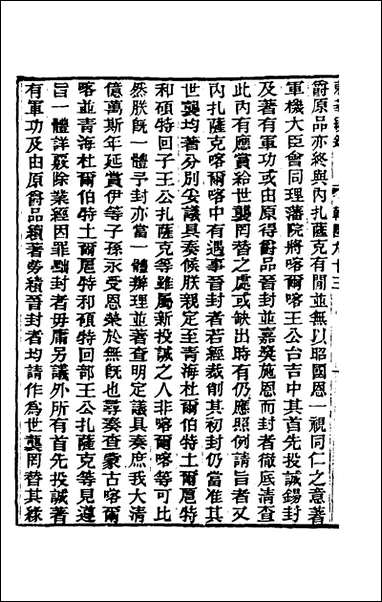 爵原品亦終與內扎薩克有間並無以昭國恩一視同仁之意著
軍機大臣會同理藩院將喀爾喀王公台吉中其首先投誠錫封
及著有軍功或由原得爵品晉封並嘉獎施恩而封者徹底清查
此內有應賞給世襲罔替之處或缺出時有仍應照例請旨者又
內扎薩克喀爾喀中有遇事晉封者若經裁削其初封仍當准其
世襲均著分別妥議具奏候朕親定至青海杜爾伯特土爾扈特
和碩特回子王公扎薩克等雖屬新投誠之人非喀爾喀等可比
然朕旣一體予封亦當一體辦理並著查明定議具奏庶我大清
億萬斯年延賞伊等子孫永受恩榮於無旣也尋奏查蒙古喀爾
喀並青海杜爾伯特土爾扈特和碩特回部王公扎薩克等見遵
旨一體詳覈除業經因罪黜封者毋庸另議外所有首先投誠著
有軍功及由原爵品積著勞積晉封者均請作為世襲罔替其緣